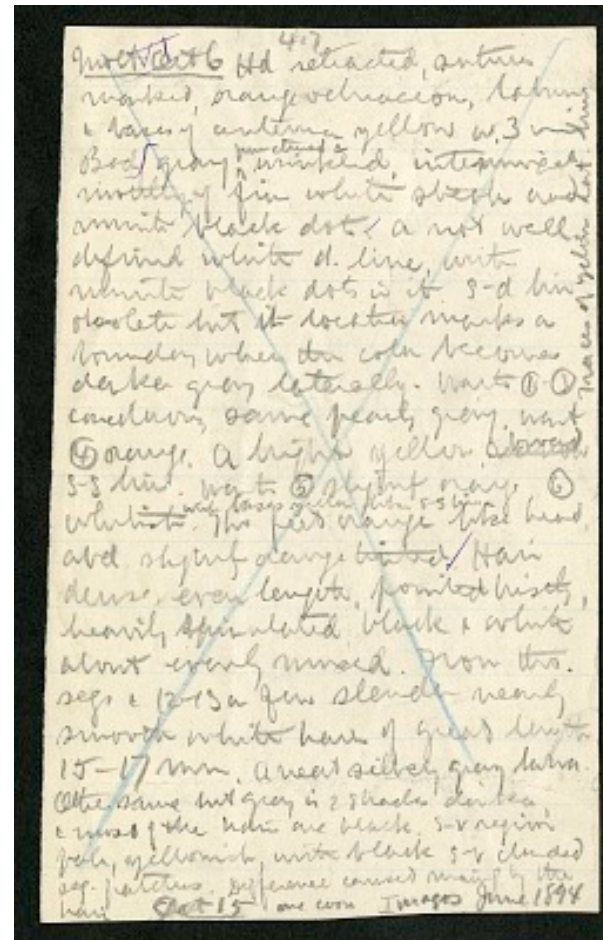 417
Molt Oct 6 Hd retracted, sutures
marked, orange vermilion, labrum
& bases of antennae yellow w. 3 mm
Body gray, punctured & wrinkled, intermingled
mottling of fine white specks and
minute black dots, a not well
defined white d. line, with
minute black dots in it s-d line
obsolete but its location marks a
boundary when the color becomes
darker gray laterally. Warts ① - ③
concolorous, same pearly gray, wart
④ orange. A bright yellow broad
s-s line. warts ⑤ slightly orange ⑥
whitish with bases yellow like s-s line. Tho feet orange like head,
abd. slightly orange tinted. Hair
dense, even length, pointed bristly,
heavily spinulated black & white
about evenly mixed. From tho.
segs & 12-13 a few slender nearly
smooth white hairs of great length
15-17 mm. A neat silvery gray larva.
Other same but gray is 2 shades darker
& most of the hairs are black. s-v region
pale, yellowish, with black s-v clouded
seg. patches. Difference caused mainly by the
hair Oct 15 one coon Imagos June 1894
traces of yellow lat. line